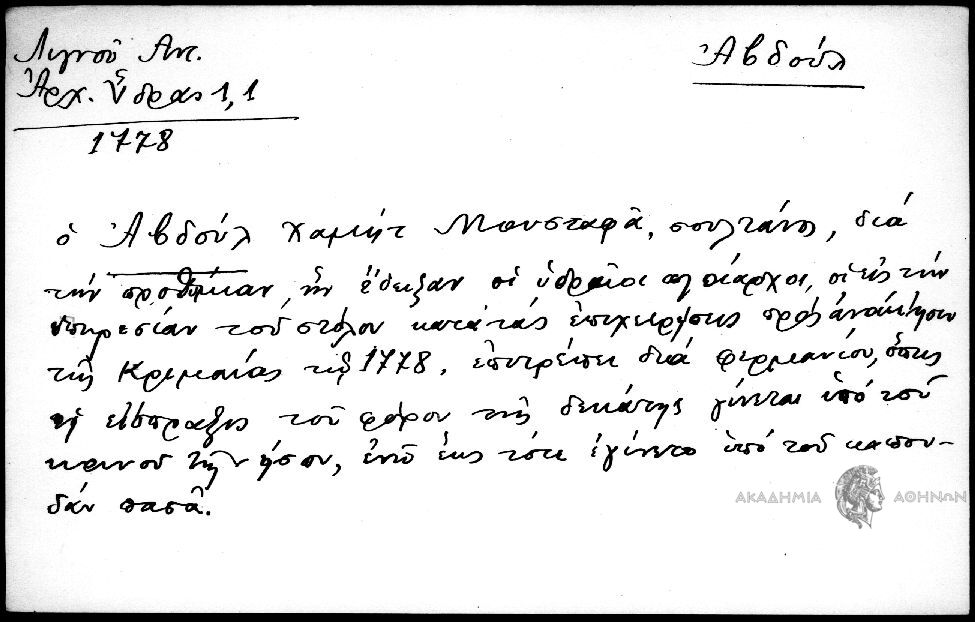 Λιγνοῦ Αντ.
Ἀρχ. Ὕδρας 1,1
1778
Ἀβδούλ
ὁ Ἀβδούλ Χαμήτ Μουσταφᾶ, σουλτάνος, διά
τήν προθυμίαν, ἥν ἔδειξαν οἱ ὑδραῖοι πλοίαρχοι, οἱ εἰς τήν
ὑπηρεσίαν τοῦ στόλου κατά τάς ἐπιχειρήσεις πρός ἀνάκτησιν
τῆς Κριμαίας τῷ 1778, ἐπιτρέπει διά φερμανίου, ὅπως
ἡ εἴσπραξις τοῦ φόρου τῆς δεκάτης γίνεται ὑπό τοῦ
κοινοῦ τῆς νήσου, ἐνῷ ἕως τότε ἐγίνετο ὑπό τοῦ καπου-
δάν πασᾶ.
ΑΚΑΔΗΜΙΑ ΑΘΗΝΩΝ